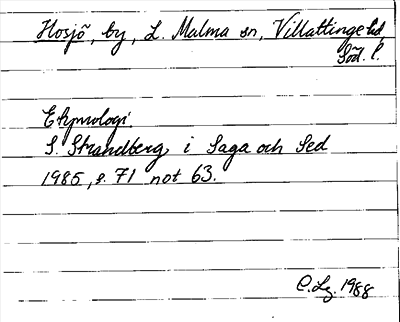 Hosjö, by, L. Malma sn, Villåttinge hd,
Söd. l.
Etymologi
S. Strandberg i Saga och Sed
1985, s. 71 not 63.
C. Lg. 1988